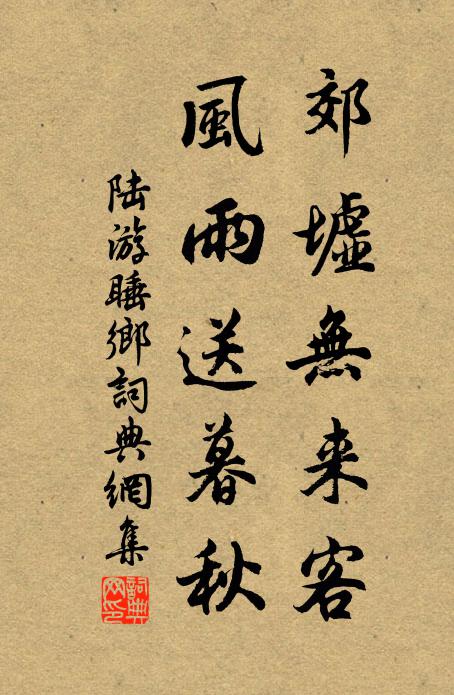 郊墟無来客
風雨送暮秋
陆游睡鄉詞典網集
詞典網印